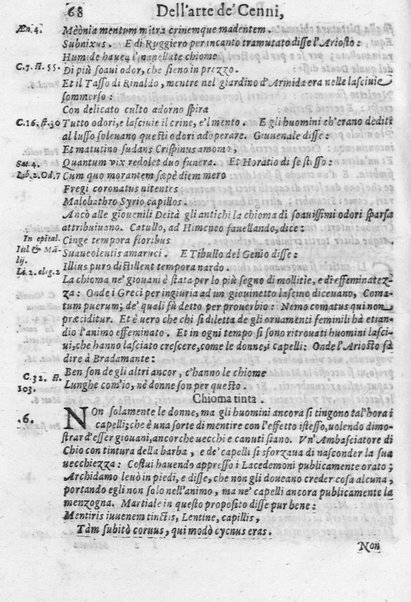 68 Dell'arte de' Cenni,
Æn. 4. Mæonia mentum mitra crinemque madentem.
Subnixus. E di Ruggiero per incanto tramutato disse l'Ariosto:
Humide havea l'anellate chiome
C. 7. st. 55. Di più soavi odor, che sieno in prezzo.
Et il Tasso di Rinaldo, mentre nel giardino d'Armida era nelle lascivie
sommerso:
Con delicato culto adorno spira
C. 16. st. 30 Tutto odori, e lascivie il crine, e'l mento. E gli huomini ch'erano dediti
al lusso soleuano questi odori adoperare. Giuuenale disse:
Et matutino sudans Crispinus amomo,
Sat. 4. Quantum vix redolet duo funera. Et Horatio di se stisso:
Lib. 2. Od. 7 Cum quo morantem sæpè diem mero
Fregi coronatus nitentes
Malobathro Syrio capillos.
Ancò alle giouenili Deità gli antichi la chioma di soauissimi odori sparsa
attribuiuano. Catullo, ad Himeneo fauellando, dice:
In epital. Cinge tempora floribus
Iul & Ma- Suaueolentis amaraci. E Tibullo del Genio disse:
lij.
Li. 2. eleg. 2 Illius puro distillent tempora nardo.
La chioma ne' giouani è stata per lo più segno di mollitie, e di effeminatez-
za: Onde i Greci per ingiuria ad un giouinetto lasciuo diceuano, Coma-
tum puerum; de' quali fù detto per prouerbio: Nemo comatus qui non
præciditur. Et è vero che chi si diletta de gli ornamenti femminili hà etian-
dio l'animo effeminato. Et in ogni tempo si sono ritrouati huomini lasci-
ui, che hanno lasciato crescere, come le donne, i capelli: Onde l'Ariosto fà
dire à Bradamante:
C. 32. st. Ben son de gli altri ancor, c'hanno le chiome
103. Lunghe com'io, nè donne son per questo.
Chioma tinta.
6. NOn solamente le donne, ma gli huomini ancora si tingono tal'hora i
capelli; che è una sorte di mentire con l'effetto istesso, uolendo dimo-
strar d'esser giouani, ancorche uecchi e canuti siano. Vn' Ambasciatore di
Chio con tintura della barba, e de' capelli si sforzaua di nasconder la sua
uecchiezza: Costui hauendo appresso i Lacedemoni publicamente orato;
Archidamo leuò in piedi, e disse, che non gli doueano creder cosa alcuna,
portando egli non solo nell'animo, ma ne' capelli ancora publicamente la
menzogna. Martiale in questo proposito disse pur bene:
Mentiris iuuenem tinctis, Lentine, capillis,
Tàm subitò coruus, qui modò cycnus eras.
Non